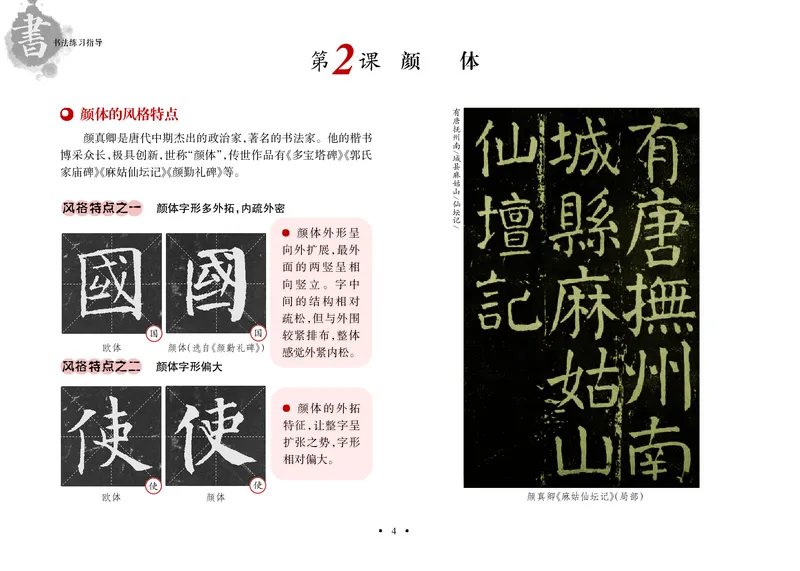 書
书法练习指导
第2课 颜 体
颜体的风格特点
颜真卿是唐代中期杰出的政治家,著名的书法家。他的楷书
博采众长,极具创新,世称“颜体”,传世作品有《多宝塔碑》《郭氏
家庙碑》《麻姑仙坛记》《颜勤礼碑》等。
风格特点之一 颜体字形多外拓,内疏外密
國
國
国
国
欧体
颜体(选自《颜勤礼碑》)
颜体外形呈
向外扩展,最外
面的两竖呈相
向竖立。字中
间的结构相对
疏松,但与外围
较紧排布,整体
感觉外紧内松。
风格特点之二 颜体字形偏大
使
使
使
使
欧体
颜体
颜体的外拓
特征,让整字呈
扩张之势,字形
相对偏大。
有唐抚州南/城县麻姑山/仙坛记/
有唐撫州南
城縣麻姑山
仙壇記
颜真卿《麻姑仙坛记》(局部)
• 4 •